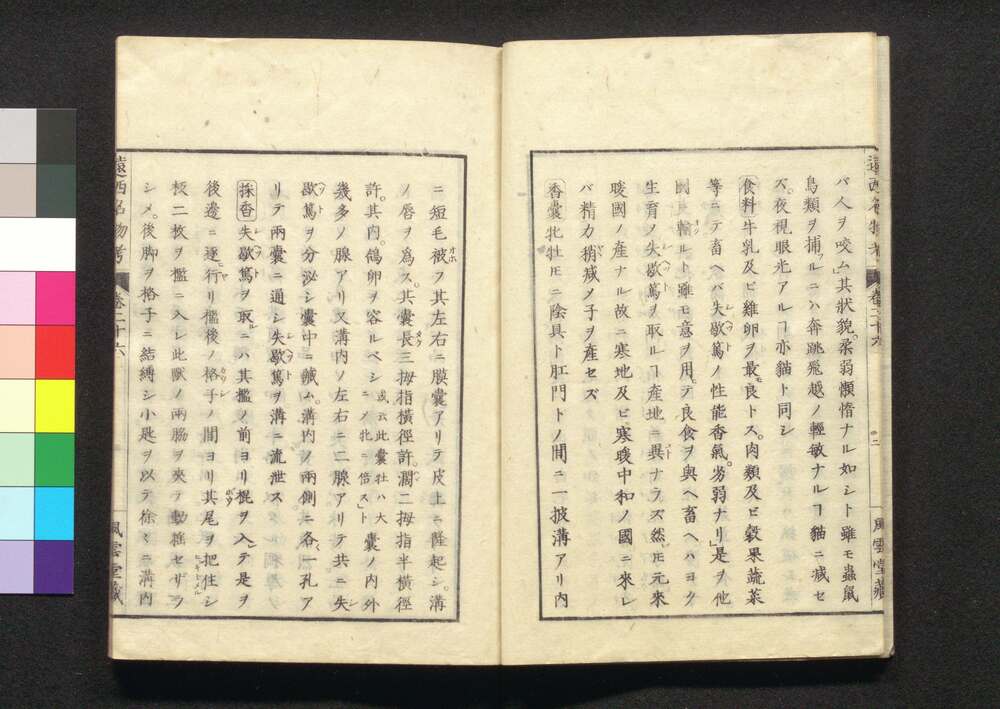 遠西名物考 卷二十六 二 風雲堂藏
バ人ヲ咬ム其狀貌柔弱懶惰ナル如シト雖モ蟲鼠
鳥類ヲ捕フルニハ奔跳飛越ノ輕敏ナルヿ貓ニ減セ
ズ。夜視眼光アルヿ亦貓ト同シ
食料 牛乳及ビ雞卵ヲ最良トス。肉類及ビ穀果蔬菜
等ニテ畜ヘバ失歇篤ノ性能香氣劣弱ナリ」是ヲ他
國ニ輸ルト雖モ意ヲ用テ良食ヲ與ヘ畜ヘハヨク
生育ノ失歇篤ヲ取ルヿ産地ニ異ナラズ然𪜈元來
暖國ノ産ナル故ニ寒地及ビ寒暖中和ノ國ニ來レ
バ精力稍減メ子ヲ産セズ
香囊 牝牡𪜈ニ陰具ト肛門トノ間ニ一披溝アリ内
ニ短毛被ヲ其左右ニ膜囊アリテ皮上ニ隆起シ。溝
ノ唇ヲ爲ス。其囊長三拇指橫徑許濶二拇指半橫徑
許。其内。鴿卵ヲ容ルベシ 或云此囊牡ハ大ニノ牝ニ倍スト 囊ノ内外
幾多ノ腺アリ又溝内ノ左右ニ二腺アリテ共ニ失
歇篤ヲ分泌シ囊中ニ藏ム。溝内ノ兩側ニ各一孔ア
リテ兩囊ニ通シ失歇篤ヲ溝ニ流泄ス
採香 失歇篤ヲ取ルニハ其檻ノ前ヨリ棍ヲ入テ是ヲ
後邊ニ逐行リ檻後ノ格子ノ間ヨリ其尾ヲ把住シ
板二枚ヲ檻ニ入レ此獸ノ兩脇ヲ夾テ動搖セザラ
シメ。後脚ヲ格子ニ結縛シ小匙ヲ以テ徐々ニ溝内
遠西名物考 卷二十六 風雲堂藏